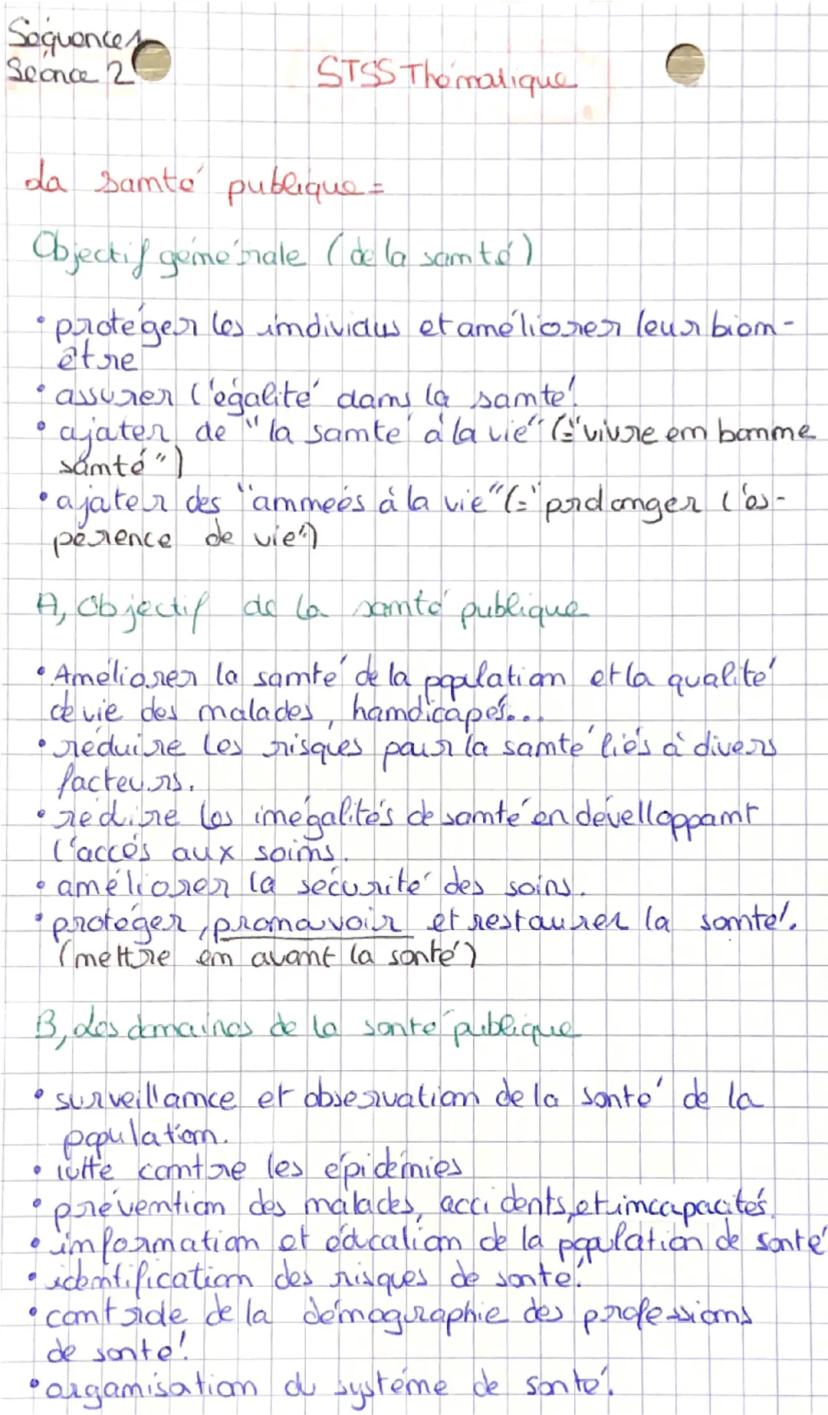 Séquence 1
Séance 2
STSS Thématique
La santé publique =
Objectif générale (de la santé)
• protéger les individus et améliorer leur bien-
être
• assurer l'égalité dans la santé.
• ajouter de "la santé à la vie" (="vivre en bonne
santé")
• ajouter des "années à la vie" (="prolonger l'es-
pérence de vie")
A, Objectif de la santé publique
• Améliorer la santé de la population et la qualité
de vie des malades, handicapés...
• réduire les risques pour la santé liés à divers
facteurs.
• rédire les inégalités de santé en dévelloppant
l'accés aux soins.
• améliorer la sécurité des soins.
• protéger, promouvoir et restaurer la santé.
(mettre en avant la santé)
B, Les domaines de la santé publique
• surveillance et observation de la santé de la
population.
• lutte contre les épidémies
• prévention des malades, accidents, et incapacités.
• information et éducation de la population de santé
• identification des risques de santé.
• controle de la démographie des professions
de santé.
• organisation du systéme de santé.